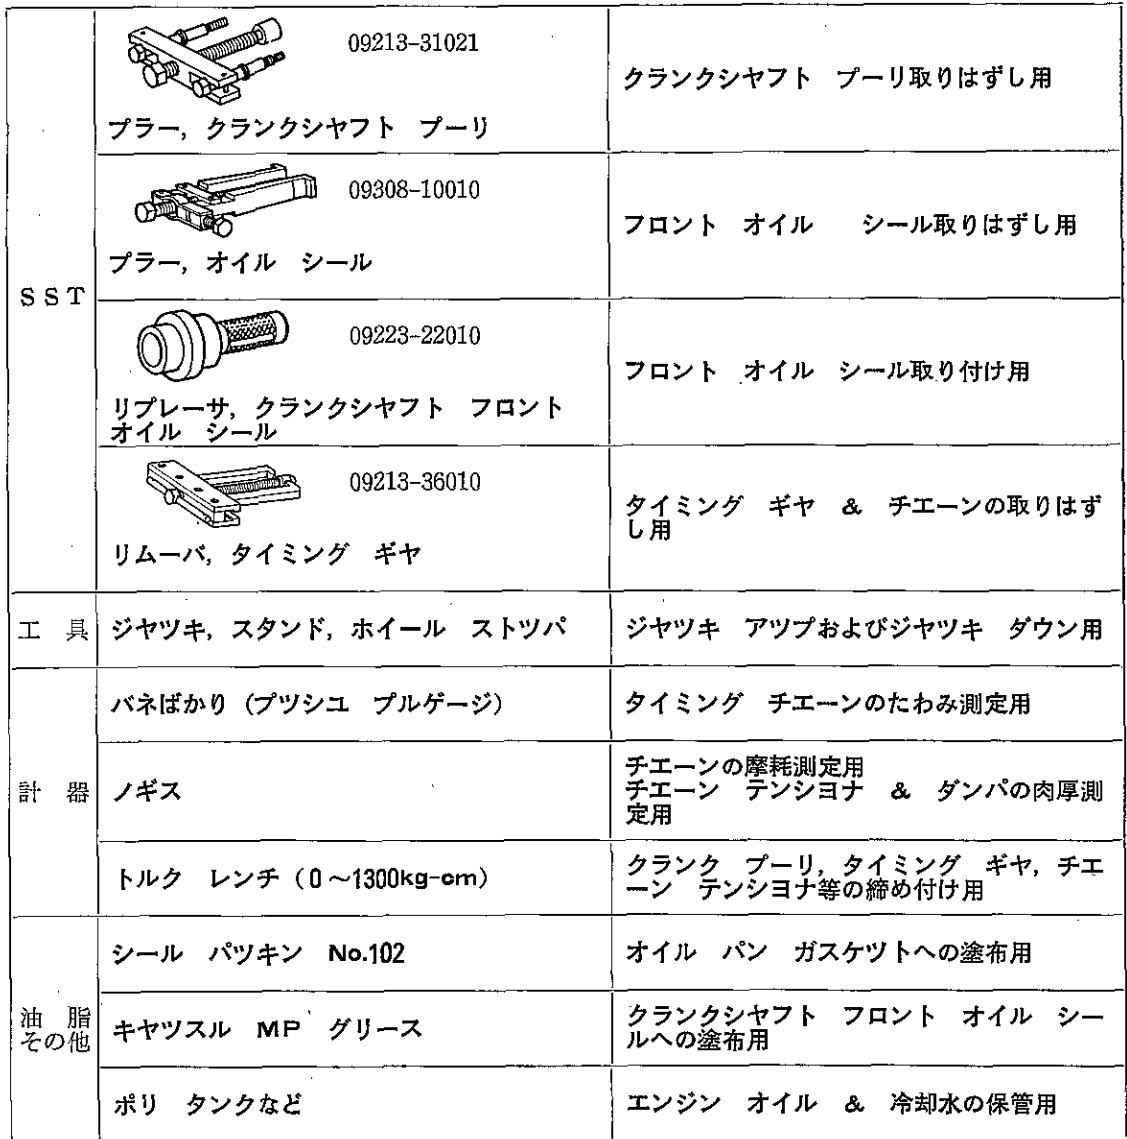 09213-31021
プラー，クランクシヤフト　プーリ
クランクシヤフト　プーリ取りはずし用
09308-10010
プラー，オイル　シール
フロント　オイル　　シール取りはずし用
ＳＳＴ
09223-22010
リプレーサ，クランクシヤフト　フロント
オイル　シール
フロント　オイル　シール取り付け用
09213-36010
リムーバ，タイミング　ギヤ
タイミング　ギヤ　&　チエーンの取りはず
し用
工　具
ジヤツキ，スタンド，ホイール　ストツパ
ジヤツキ　アツプおよびジヤツキ　ダウン用
計　器
バネばかり（プツシユ　プルゲージ）
タイミング　チエーンのたわみ測定用
ノギス
チエーンの摩耗測定用
チエーン　テンシヨナ　&　ダンパの肉厚測
定用
トルク　レンチ（0～1300kg-cm）
クランク　プーリ，タイミング　ギヤ，チエ
ーン　テンシヨナ等の締め付け用
油　脂
その他
シール　パツキン　No.102
オイル　パン　ガスケツトへの塗布用
キヤツスル　MP　グリース
クランクシヤフト　フロント　オイル　シー
ルへの塗布用
ポリ　タンクなど
エンジン　オイル　&　冷却水の保管用